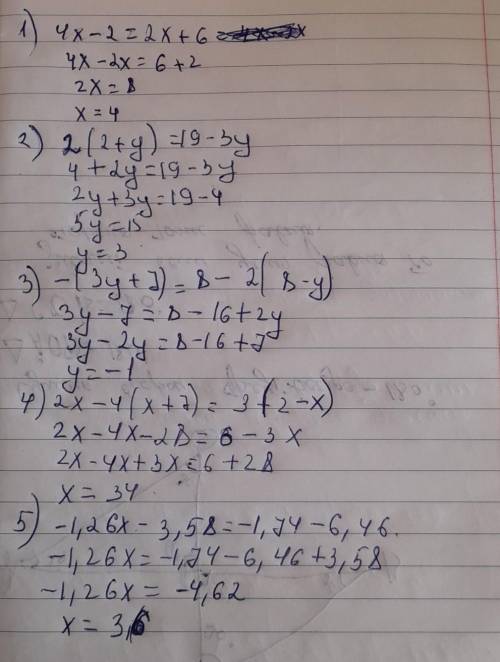 1) 4x-2=2x+6
4x-2x=6+2
2x=8
x=4
2) 2(2+y)=19-3y
4+2y=19-3y
2y+3y=19-4
5y=15
y=3
3) -(3y+7)=8-2(8-y)
3y-7=8-16+2y
3y-2y=8-16+7
y=-1
4) 2x-4(x+7)=3(2-x)
2x-4x-28=6-3x
2x-4x+3x=6+28
x=34
5) -1,26x-3,58=-1,74-6,46.
-1,26x=-1,74-6,46+3,58
-1,26x=-4,62
x=3,6